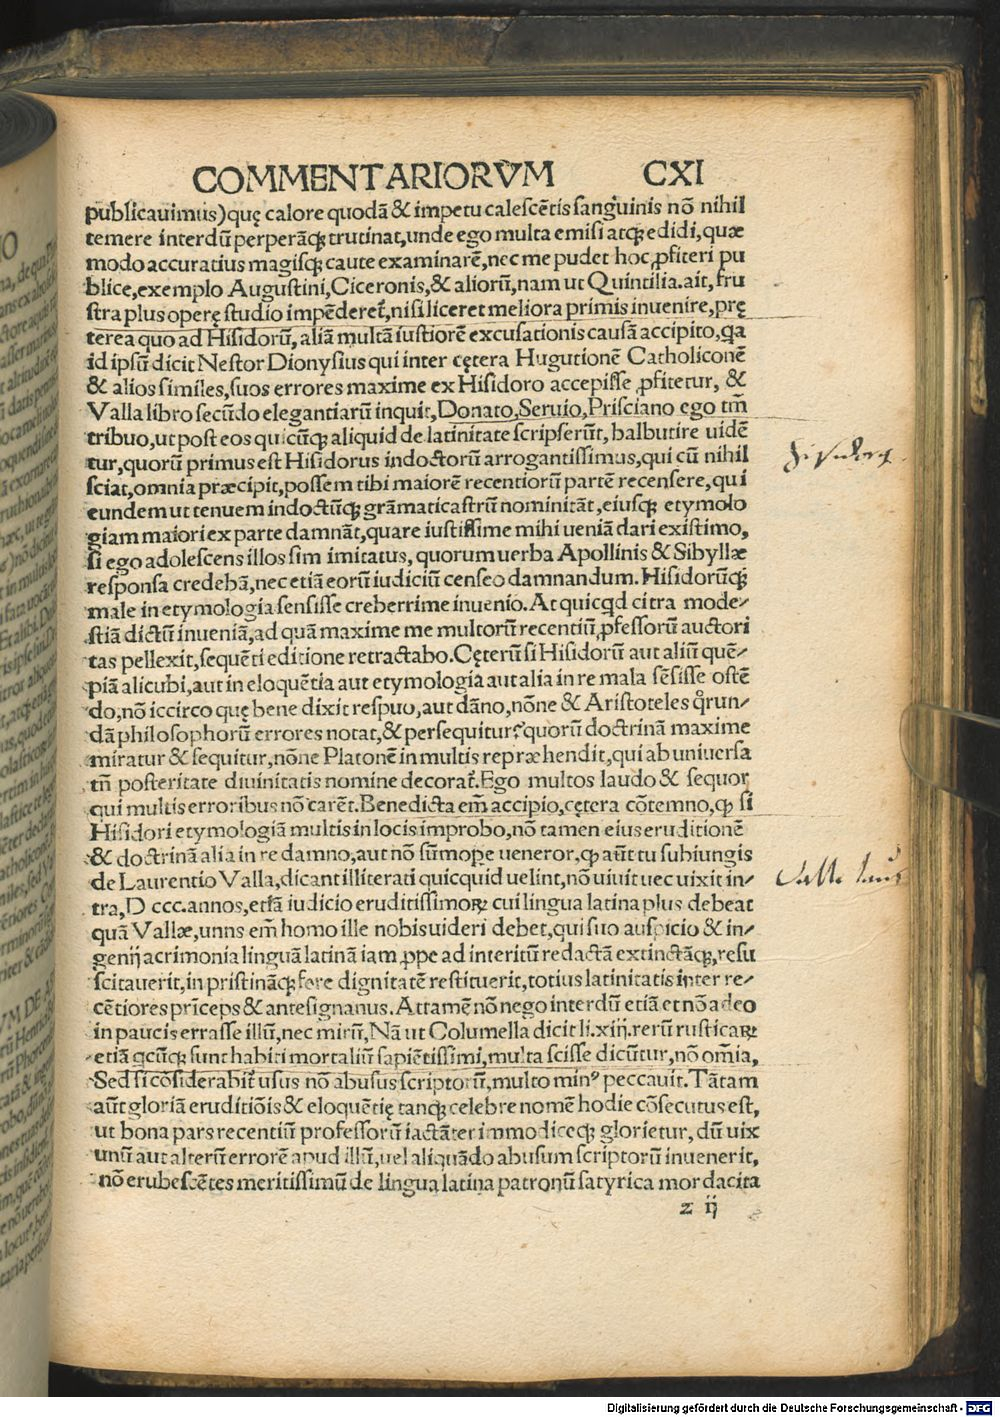 COMMENTARIORVM CXI
publicauimus) quę calore quodā & impetu calescētis sanguinis nō nihil
temere interdū perperāqȝ trutinat, unde ego multa emisi atqȝ edidi, quæ
modo accuratius magisqȝ caute examinarē, nec me pudet hoc ꝓfiteri pu
blice, exemplo Augustini, Ciceronis, & aliorū, nam ut Quintilia. ait, fru
stra plus operę studio impēderet̄, nisi liceret meliora primis inuenire, prę
terea quo ad Hisidorū, aliā multā iustiorē excusationis causā accipito, qa
id ipsū dicit Nestor Dionysius qui inter cętera Hugutionē Catholiconē
& alios similes, suos errores maxime ex Hisidoro accepisse ꝓfitetur, &
Valla libro secūdo elegantiarū inquit, Donato, Seruio, Prisciano ego tm̄
tribuo, ut post eos quicūqȝ aliquid de latinitate scripserūt, balbutire uidē
tur, quorū primus est Hisidorus indoctorū arrogantissimus, qui cū nihil
sciat, omnia præcipit, possem tibi maiorē recentiorū partē recensere, qui
eundem ut tenuem indoctūqȝ grāmaticastrū nominitāt, eiusqȝ etymolo
giam maiori ex parte damnāt, quare iustissime mihi ueniā dari existimo,
si ego adolescens illos sim imitatus, quorum uerba Apollinis & Sibyllæ
responsa credebā, nec etiā eorū iudiciū censeo damnandum. Hisidorūqȝ
male in etymologia sensisse creberrime inuenio. At quicqd citra mode-
stiā dictū inueniā, ad quā maxime me multorū recentiū ꝓfessorū auctori
tas pellexit, sequēti editione retractabo. Cęterū si Hisidorū aut aliū quē-
piā alicubi, aut in eloquētia aut etymologia aut alia in re mala sēsisse ostē
do, nō iccirco quę bene dixit respuo, aut dāno, nōne & Aristoteles qrun-
dā philosophorū errores notat, & persequitur? quorū doctrinā maxime
miratur & sequitur, nōne Platonē in multis repræhendit, qui ab uniuersa
tn̄ posteritate diuinitatis nomine decorat̄. Ego multos laudo & sequor
qui multis erroribus nō carēt. Benedicta em̄ accipio, cętera cōtemno, qȝ si
Hisidori etymologiā multis in locis improbo, nō tamen eius eruditionē
& doctrinā alia in re damno, aut nō sūmope ueneror, qȝ aūt tu subiungis
de Laurentio Valla, dicant illiterati quicquid uelint, nō uiuit uec uixit in-
tra, D ccc. annos, etiā iudicio eruditissimoꝝ cui lingua latina plus debeat
quā Vallæ, unns em̄ homo ille nobis uideri debet, qui suo auspicio & in-
genij acrimonia linguā latinā iam ꝓpe ad interitū redactā extinctāqȝ, resu
scitauerit, in pristināqȝ fere dignitatē restituerit, totius latinitatis inter re-
cētiores prīceps & antesignanus. Attamē nō nego interdū etiā et nō adeo
in paucis errasse illū, nec mirū, Nā ut Columella dicit li. xiij. rerū rusticaꝝ
etiā qcūqȝ sunt habiti mortaliū sapiētissimi, multa scisse dicūtur, nō om̄ia,
Sed si cōsiderabit̄ usus nō abusus scriptorū, multo minꝰ peccauit. Tātam
aūt gloriā eruditiōis & eloquētię tanqȝ celebre nomē hodie cōsecutus est,
ut bona pars recentiū professorū iactāter immodiceqȝ glorietur, dū uix
unū aut alterū errorē apud illū, uel aliquādo abusum scriptorū inuenerit,
nō erubescētes meritissimū de lingua latina patronū satyrica mordacita
z ij
Valle laus
Digitalisierung gefördert durch die Deutsche Forschungsgemeinschaft - DFG